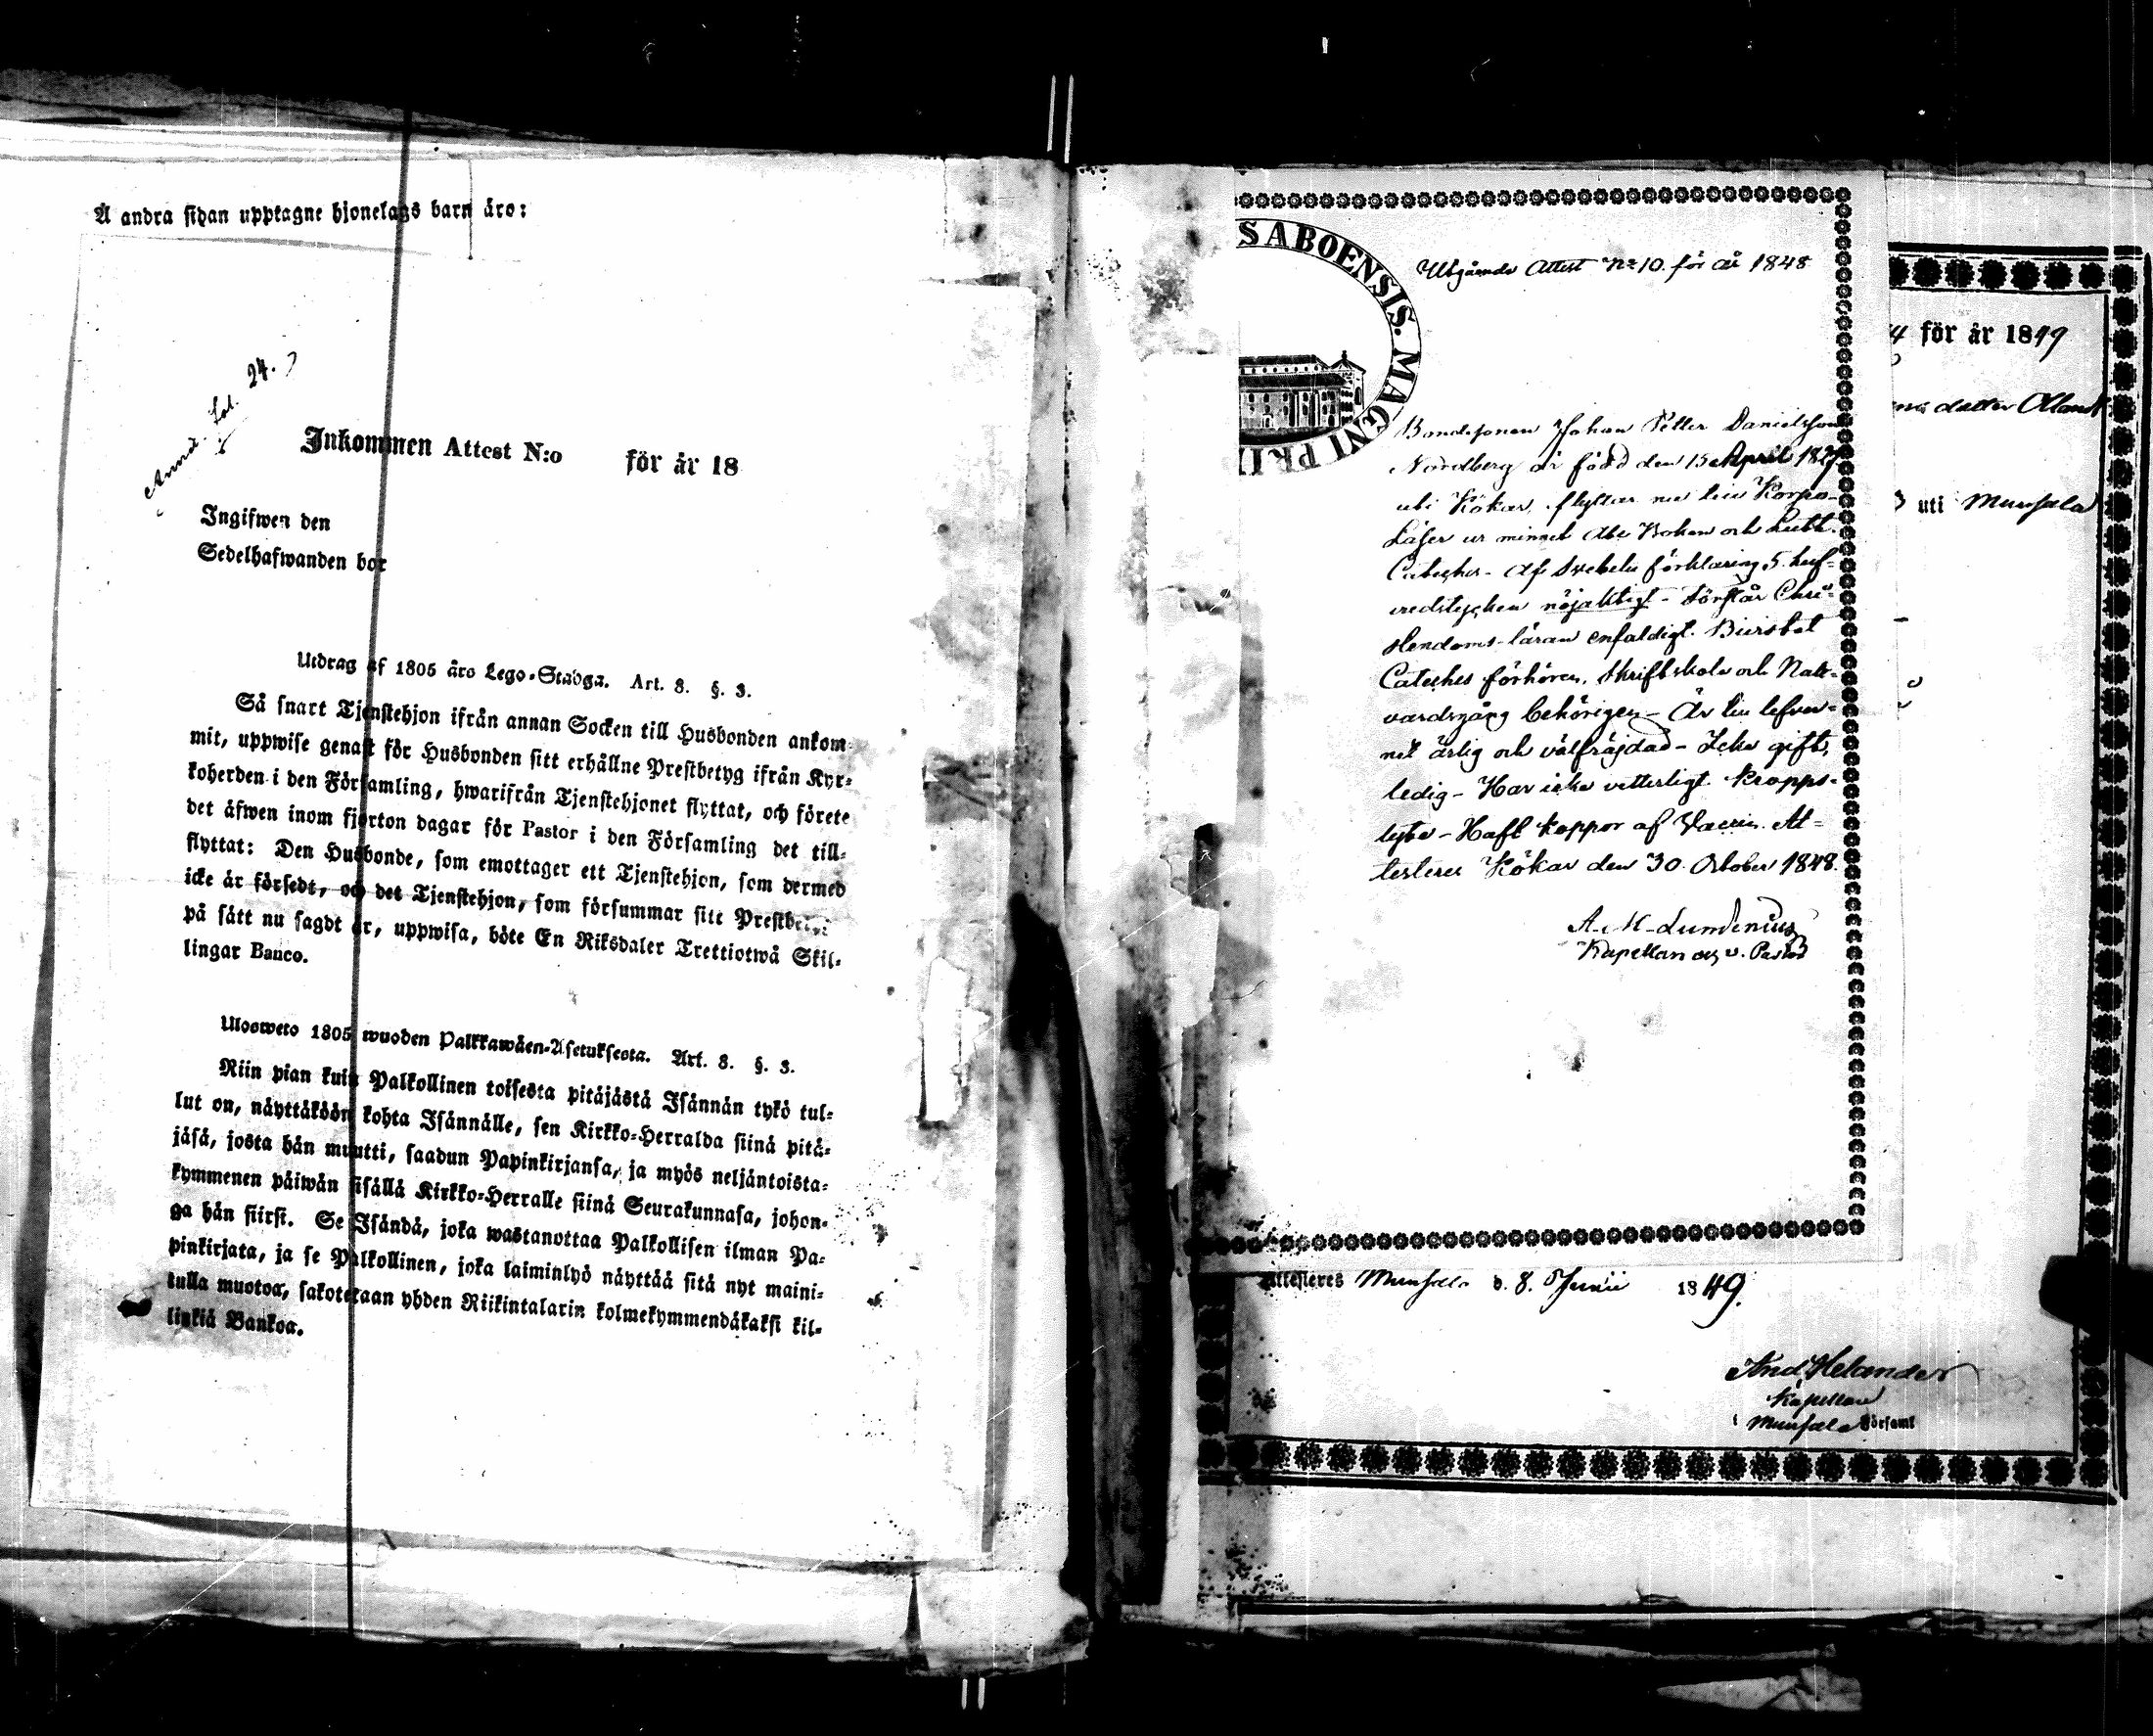 Å andra sidan upptagne hjonelags barn äro:
Anná. fol. 24.
Inkommen Attest N:o för år 18
Ingifwen den
Sedelhafwanden bor
Utdrag af 1805 års Lego-Stadga. Art. 8. §. 3.
Så snart Tjenstehjon ifrån annan Socken till Husbonden ankom-
mit, uppwise genast för Husbonden sitt erhållne Prestbetyg ifrån Kyr-
koherden i den Församling, hwarifrån Tjenstehjonet flyttat, och förete
det äfwen inom fjorton dagar för Pastor i den Församling det till-
flyttat: Den Husbonde, som emottager ett Tjenstehjon, som dermed
icke är försedt, och det Tjenstehjon, som försummar sitt Prestbetyg
på sätt nu sagdt är, uppwisa, böte En Riksdaler Trettiotwå Skil-
lingar Banco.
Ulosweto 1805 wuoden Palkkawäen-Asetuksesta. Art. 8. §. 3.
Niin pian kuin Palkollinen toisesta pitäjästä Isännän tykö tul-
lut on, näyttäköön kohta Isännälle, sen Kirkko-Herralda siinä pitä-
jäsä, josta hän muutti, saadun Papinkirjansa, ja myös neljäntoista-
kymmenen päiwän sisällä Kirkko-Herralle siinä Seurakunnasa, johon-
ga hän siirsi. Se Isändä, joka wastanottaa Palkollisen ilman Pa-
pinkirjata, ja se Palkollinen, joka laiminlyö näyttää sitä nyt maini-
tulla muotoa, sakotetaan yhden Riikintalarin kolmekymmendäkaksi kil-
linkiä Bankoa.
S ABOENSIS. MAGNI PRI
Utgående Attest No 10. för år 1848
Bondesonen Johan Petter Danielsson
Nordberg är född den 15 April 1827
uti Kökar, flyttar nu till Korpo-
Läser ur minnet Abc Boken och Luth.
Cateches- af Svebelii förklaring 5. huf-
vudstycken nöjaktigt - Förstår Chri-
stendoms-läran enfaldigt. Bivistat
Cateches förhören, skriftskola och Natt-
vardsgång behörigen - Är till lefver-
net ärlig och välfräjdad - Icke gift,
ledig - Har icke vitterligt kropps-
lyte - Haft koppor af Vaccin. At-
testerar Kökar den 30. October 1848.
A. M. Lundenius
Kapellan och v. Pastor
4 för år 1849
dotter Ollandt
uti Munsala
Attesteres Munsala d. 8. Junii 1849.
And Helander
Kapellan
i Munsala Församl